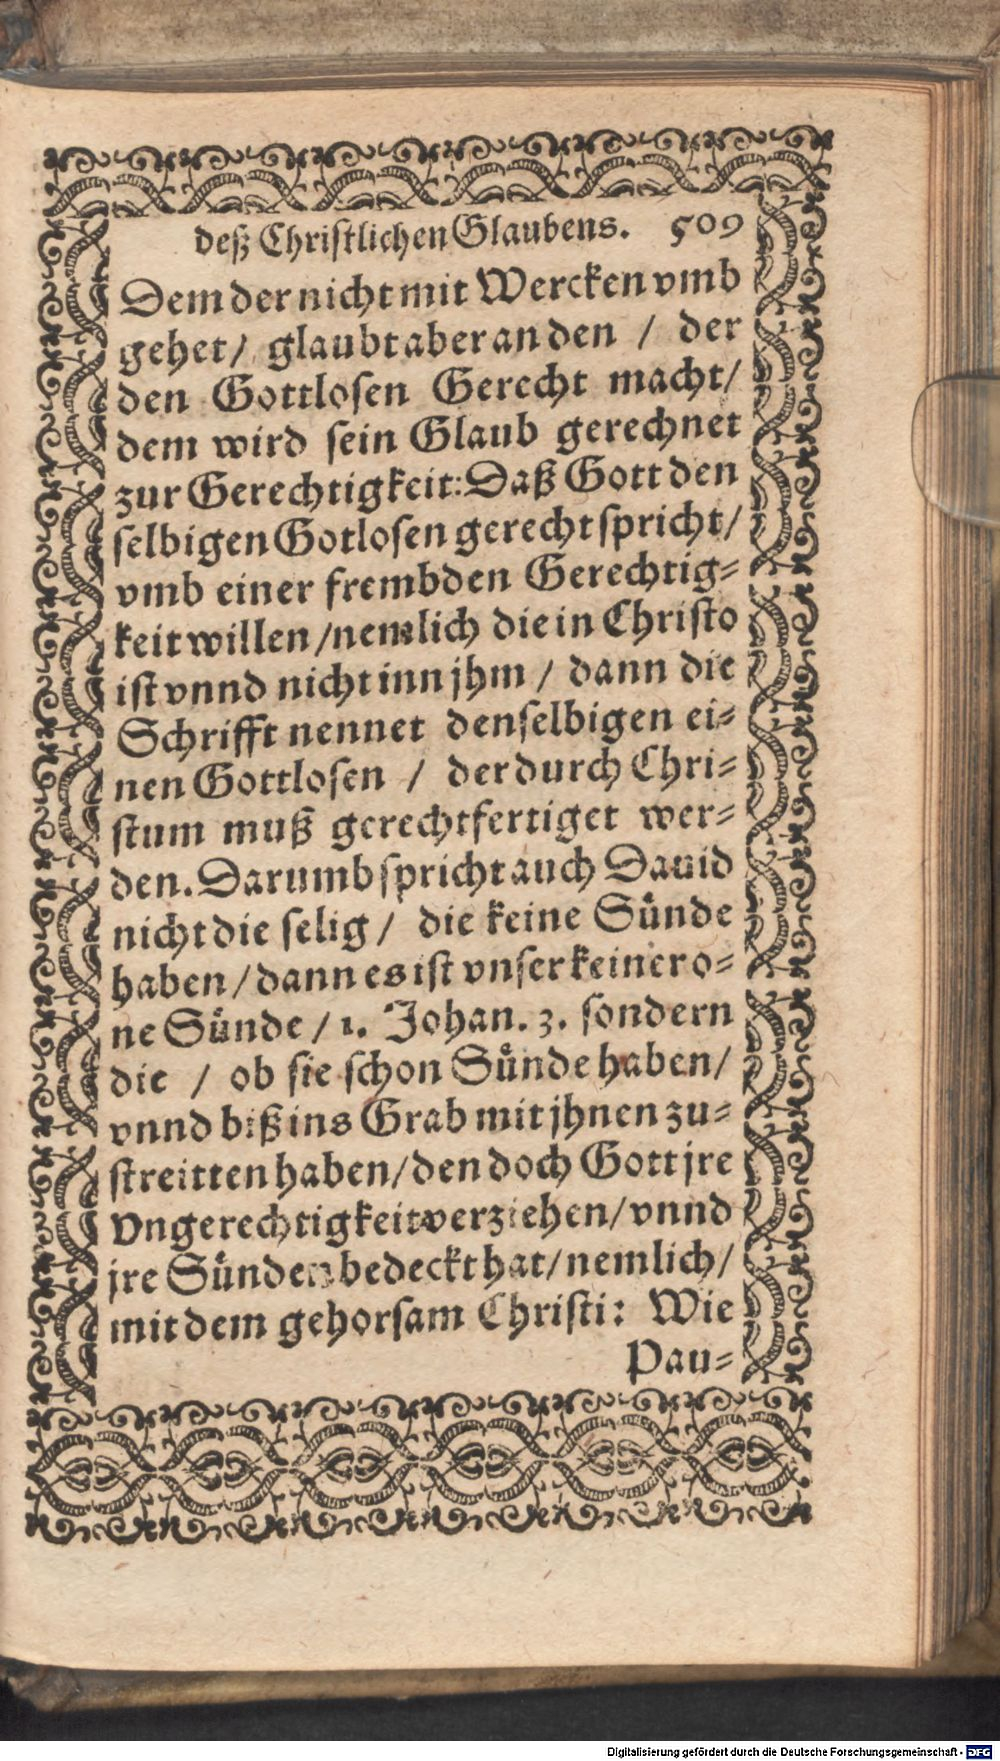 deß Christlichen Glaubens. 509
Dem der nicht mit Wercken vmb
gehet/ glaubt aber an den / der
den Gottlosen Gerecht macht/
dem wird sein Glaub gerechnet
zur Gerechtigkeit: Daß Gott den
selbigen Gotlosen gerecht spricht/
vmb einer frembden Gerechtig-
keit willen /nemlich die in Christo
ist vnnd nicht inn jhm / dann die
Schrifft nennet denselbigen ei-
nen Gottlosen / der durch Chri-
stum muß gerechtfertiget wer-
den. Darumb spricht auch Dauid
nicht die selig / die keine Sünde
haben/ dann es ist vnser keiner o-
ne Sünde /1. Johan. 3. sondern
die / ob sie schon Sünde haben/
vnnd biß ins Grab mit jhnen zu-
streitten haben/ den doch Gott jre
Vngerechtigkeit verziehen/ vnnd
jre Sünden bedeckt hat/ nemlich/
mit dem gehorsam Christi: Wie
Pau-
Digitalisierung gefördert durch die Deutsche Forschungsgemeinschaft - DFG